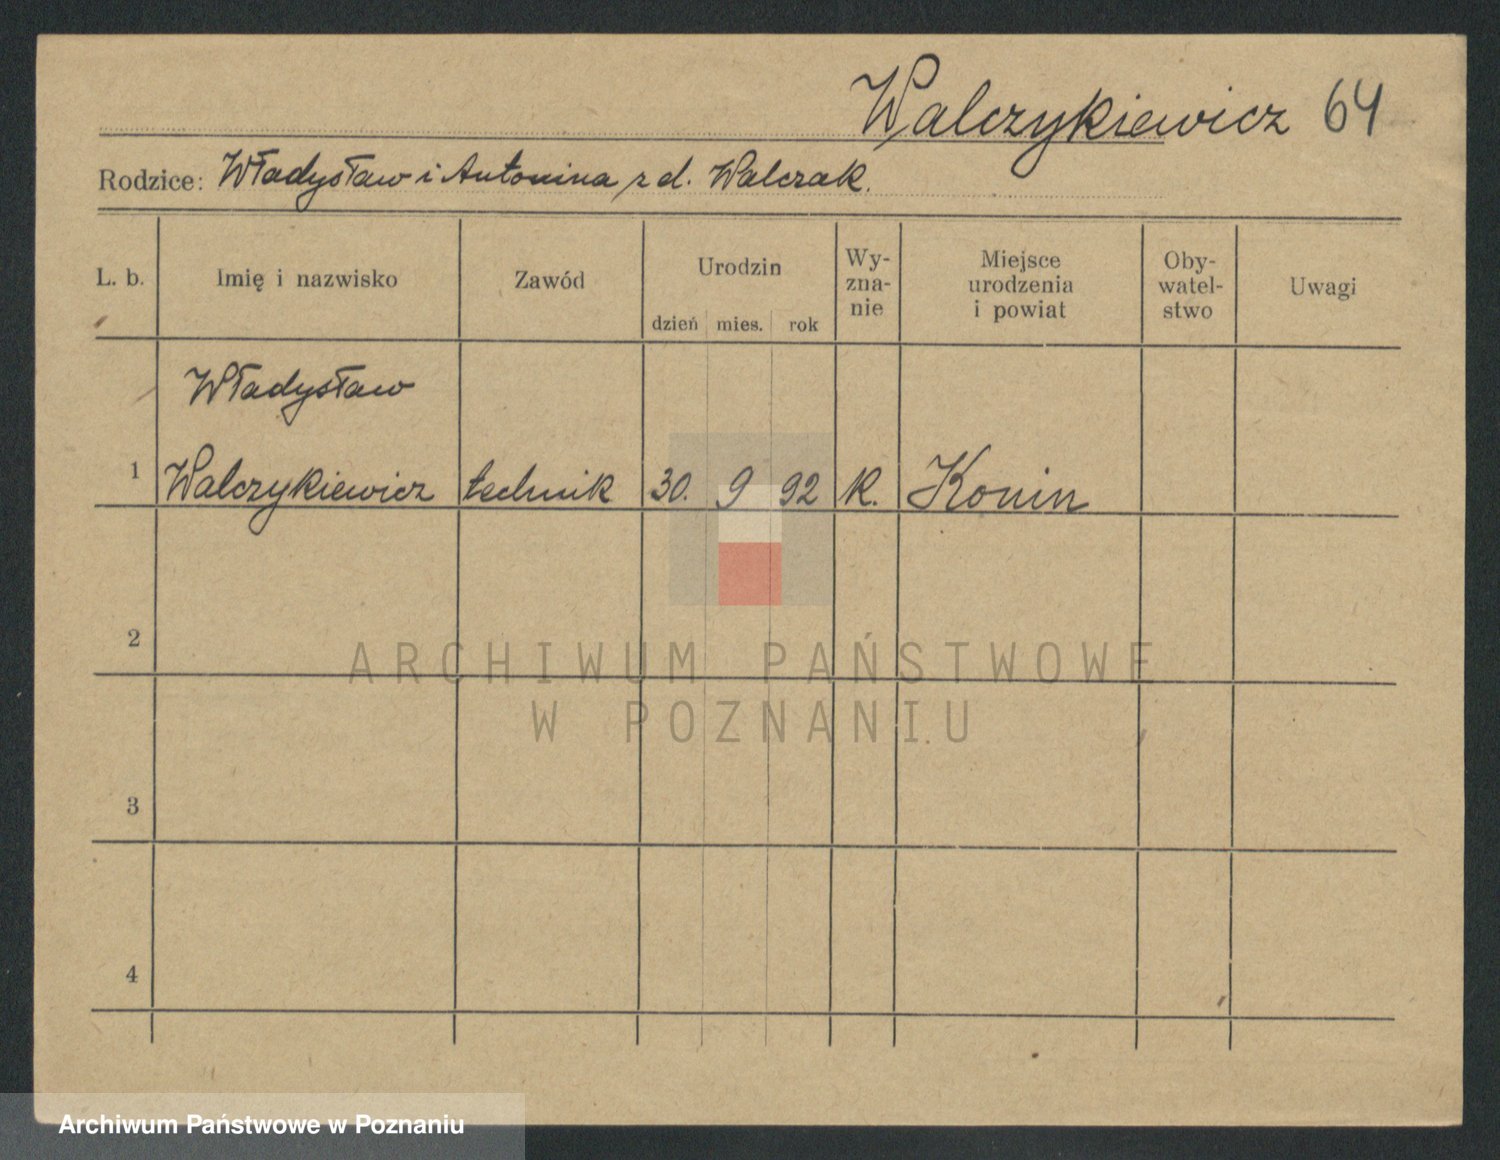 Walczykiewicz 64
Rodzice: Władysław i Antonina z d. Walczak.
L. b. Imię i nazwisko Zawód Urodzin Wy- Miejsce Oby- Uwagi
zna- urodzenia watel-
nie i powiat stwo
dzień mies. rok
Władysław
1 Walczykiewicz technik 30. 9 92 k. Konin
2
ARCHIWUM PAŃSTWOWE
W POZNANIU
3
4
Archiwum Państwowe w Poznaniu